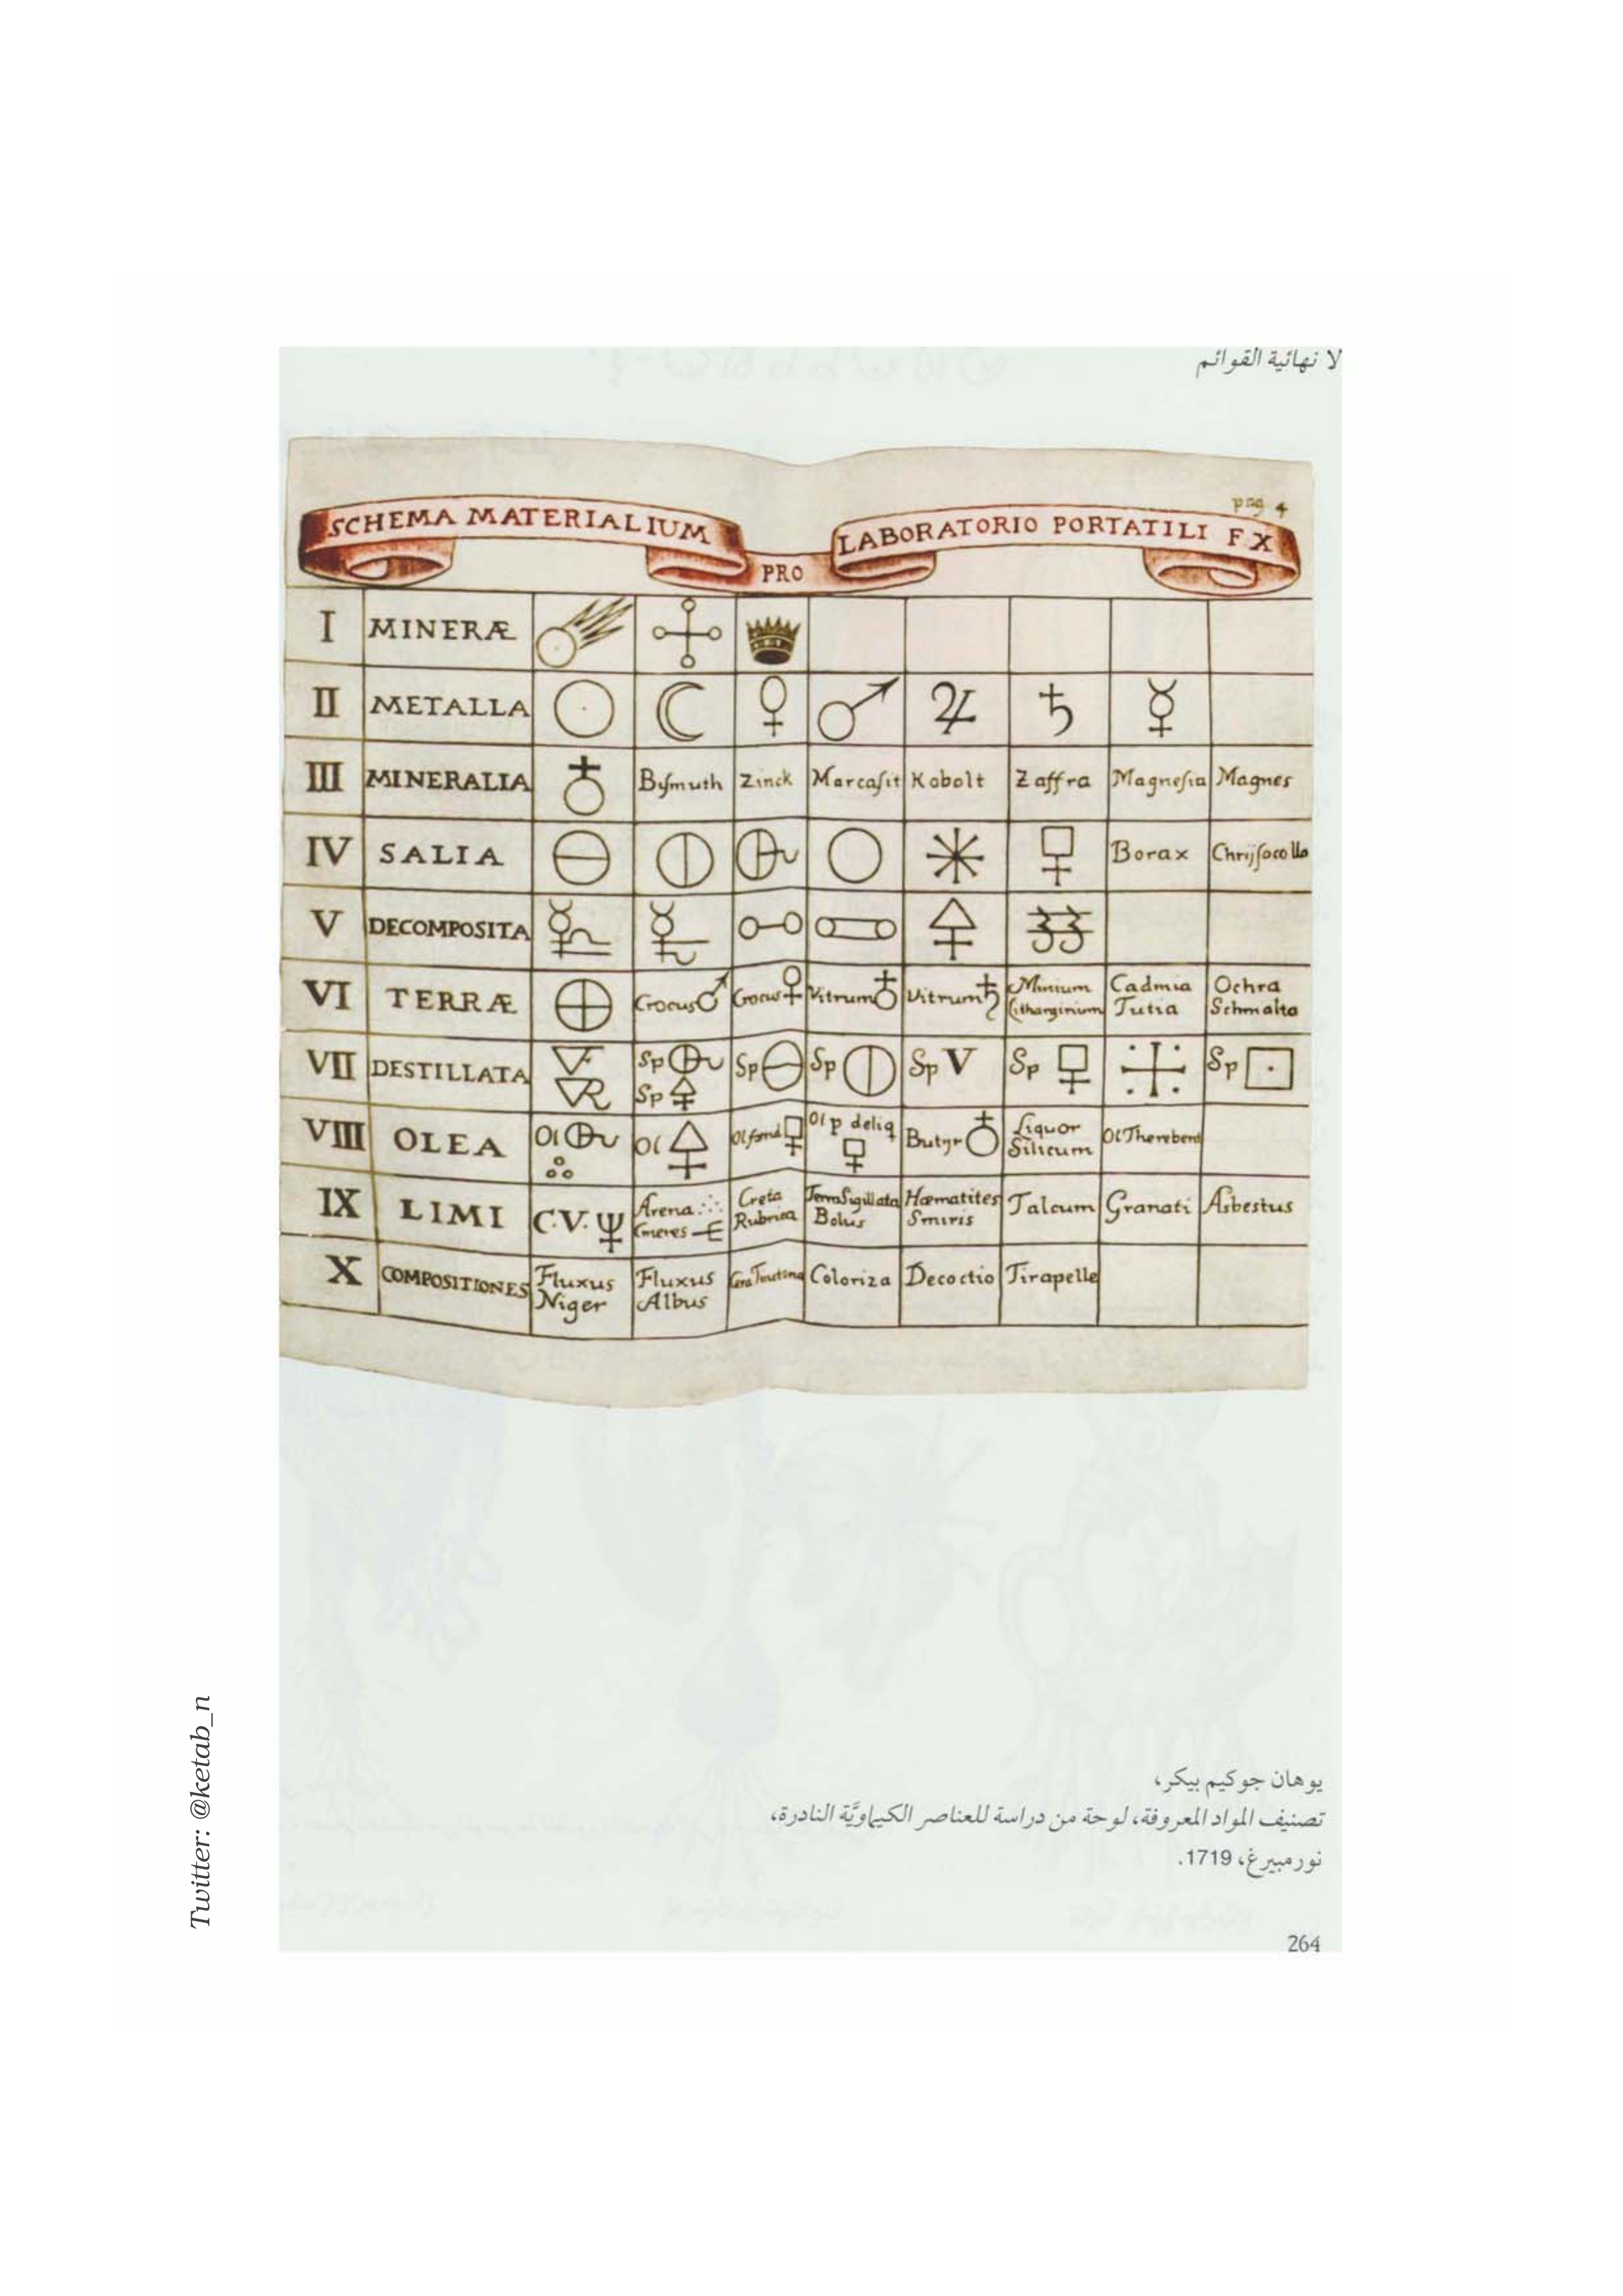 لا نهائية القوائم
pag 4
SCHEMA MATERIALIUM PRO LABORATORIO PORTATILI F X
I MINERÆ
II METALLA ☉ ☾ ♀ ♂ ♃ ♄ ☿
III MINERALIA ♁ Bysmuth Zinck Marcasit Kobolt Zaffra Magnesia Magnes
IV SALIA Borax Chrijsocolla
V DECOMPOSITA
VI TERRÆ Crocus♂ Crocus♀ Vitrum♁ Vitrum♄ Minium Lithargirium Cadmia Tutia Ochra Schmalta
VII DESTILLATA Sp Sp Sp Sp Sp V Sp Sp
VIII OLEA Ol Ol Ol Ol p deliq Butyr♁ Liquor Silicum Ol Therebent
IX LIMI C.V. Arena Cineres Creta Rubrica Terra Sigillata Bolus Hæmatites Smiris Talcum Granati Asbestus
X COMPOSITIONES Fluxus Niger Fluxus Albus Coloriza Decoctio Tirapelle
يوهان جوكيم بيكر،
تصنيف المواد المعروفة، لوحة من دراسة للعناصر الكيماويَّة النادرة،
نورمبيرغ، 1719.
264
Twitter: @ketab_n